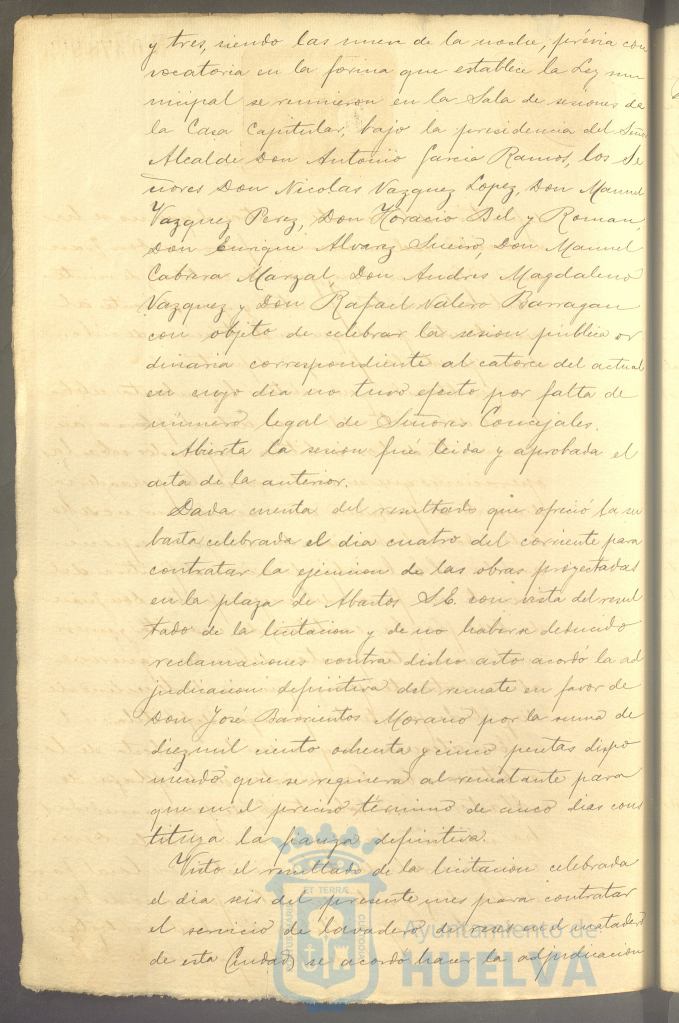 y tres, siendo las nueve de la noche, prévia con
vocatoria en la forma que establece la Ley mu
nicipal se reunieron en la Sala de sesiones de
la Casa Capitular, bajo la presidencia del Señor
Alcalde Don Antonio Garcia Ramos, los Se
ñores Don Nicolas Vazquez Lopez, Don Manuel
Vazquez Perez, Don Horacio Bel y Roman,
Don Enrique Alvarez Sueiro, Don Manuel
Cabrera Marzal, Don Andres Magdaleno
Vazquez y Don Rafael Valero Barragan
con objeto de celebrar la sesion pública or
dinaria correspondiente al catorce del actual
en cuyo dia no tuvo efecto por falta de
número legal de Señores Concejales.
Abierta la sesion fué leida y aprobada el
acta de la anterior.
Dada cuenta del resultado que ofreció la su
basta celebrada el dia cuatro del corriente para
contratar la ejecucion de las obras proyectadas
en la plaza de Abastos S.E. con vista del resul
tado de la licitacion y de no haberse deducido
reclamaciones contra dicho acto acordó la ad
judicacion definitiva del remate en favor de
Don José Barrientos Morano por la suma de
diez mil ciento ochenta y cinco pesetas dispo
niendo que se requiera al rematante para
que en el preciso término de cinco dias cons
tituya la fianza definitiva.
Visto el resultado de la licitacion celebrada
el dia seis del presente mes para contratar
el servicio de lavadero de reses en el matadero
de esta Ciudad se acordó hacer la adjudicacion
Ayuntamiento de
HUELVA